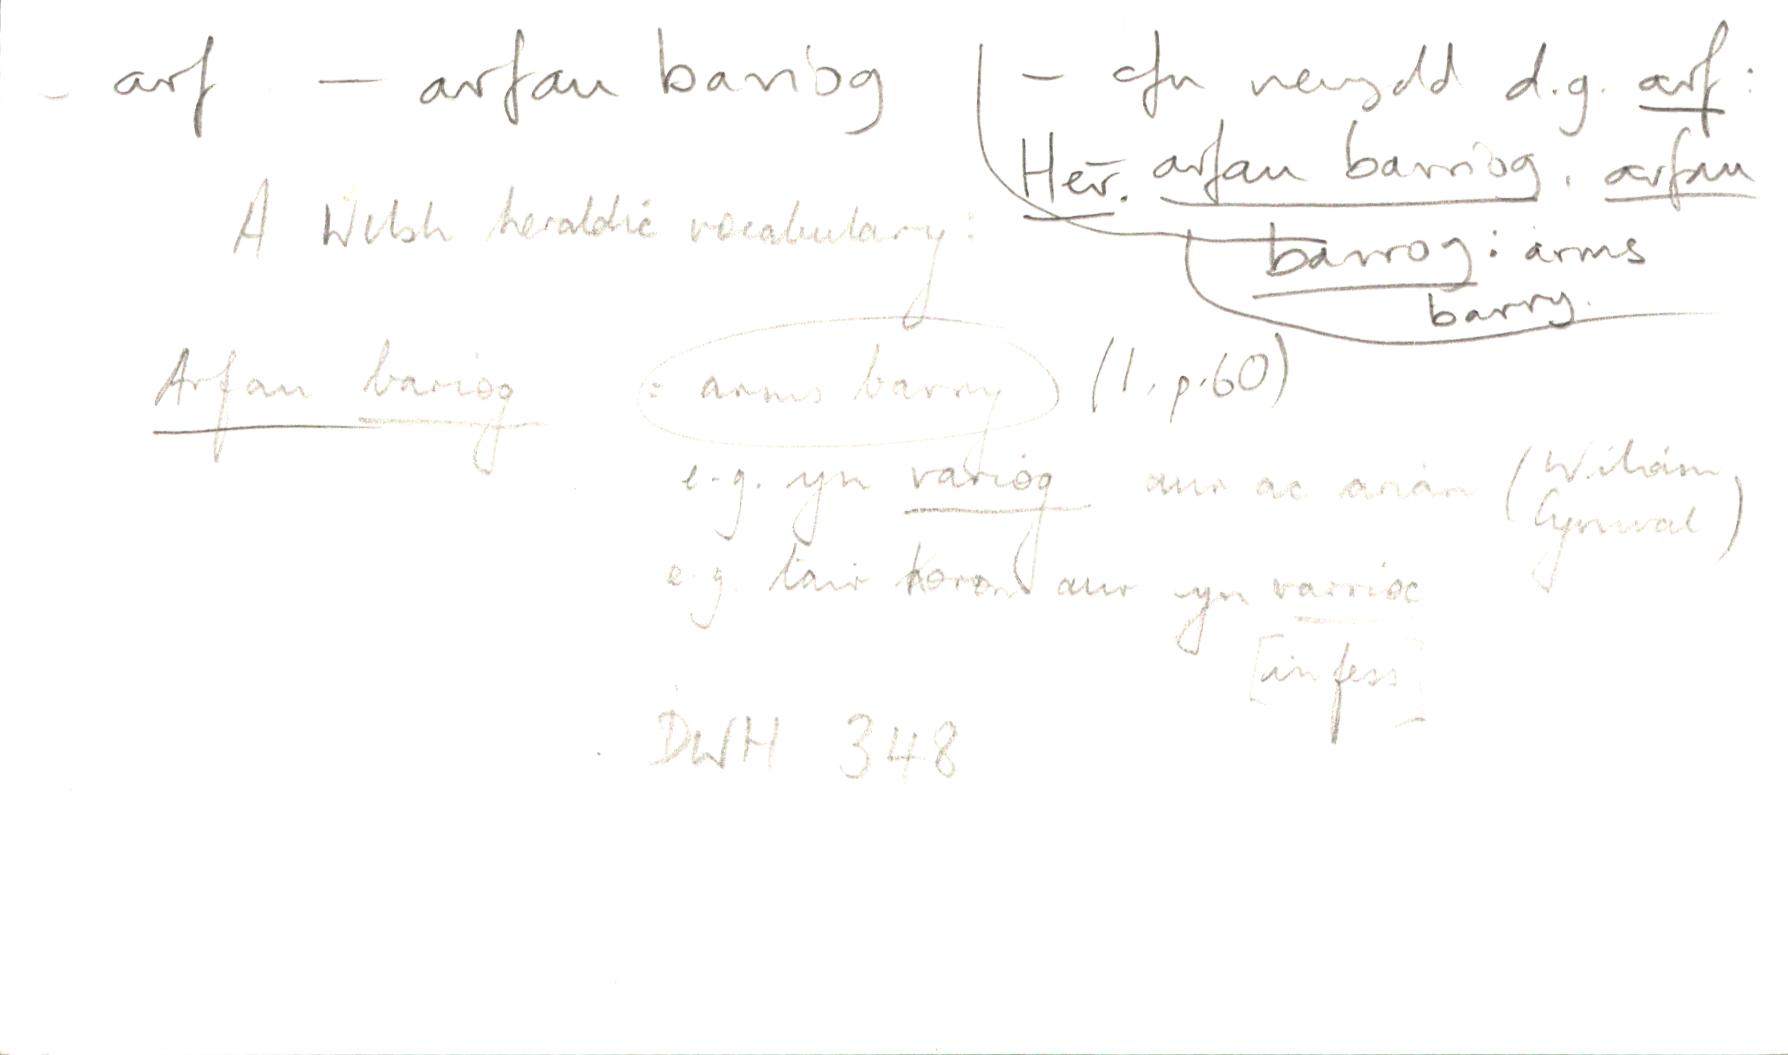 - arf — arfau barriog
- cfn newydd d.g. arf:
Her. arfau barriog, arfau
barrog: arms
barry.
A Welsh heraldic vocabulary:
Arfau bariog = arms barry (1. p.60)
e.g. yn variog aur ac arian (Wiliam
Cynwal)
e.g. tair koron aur yn varrioc
[in fess]
DWH 348